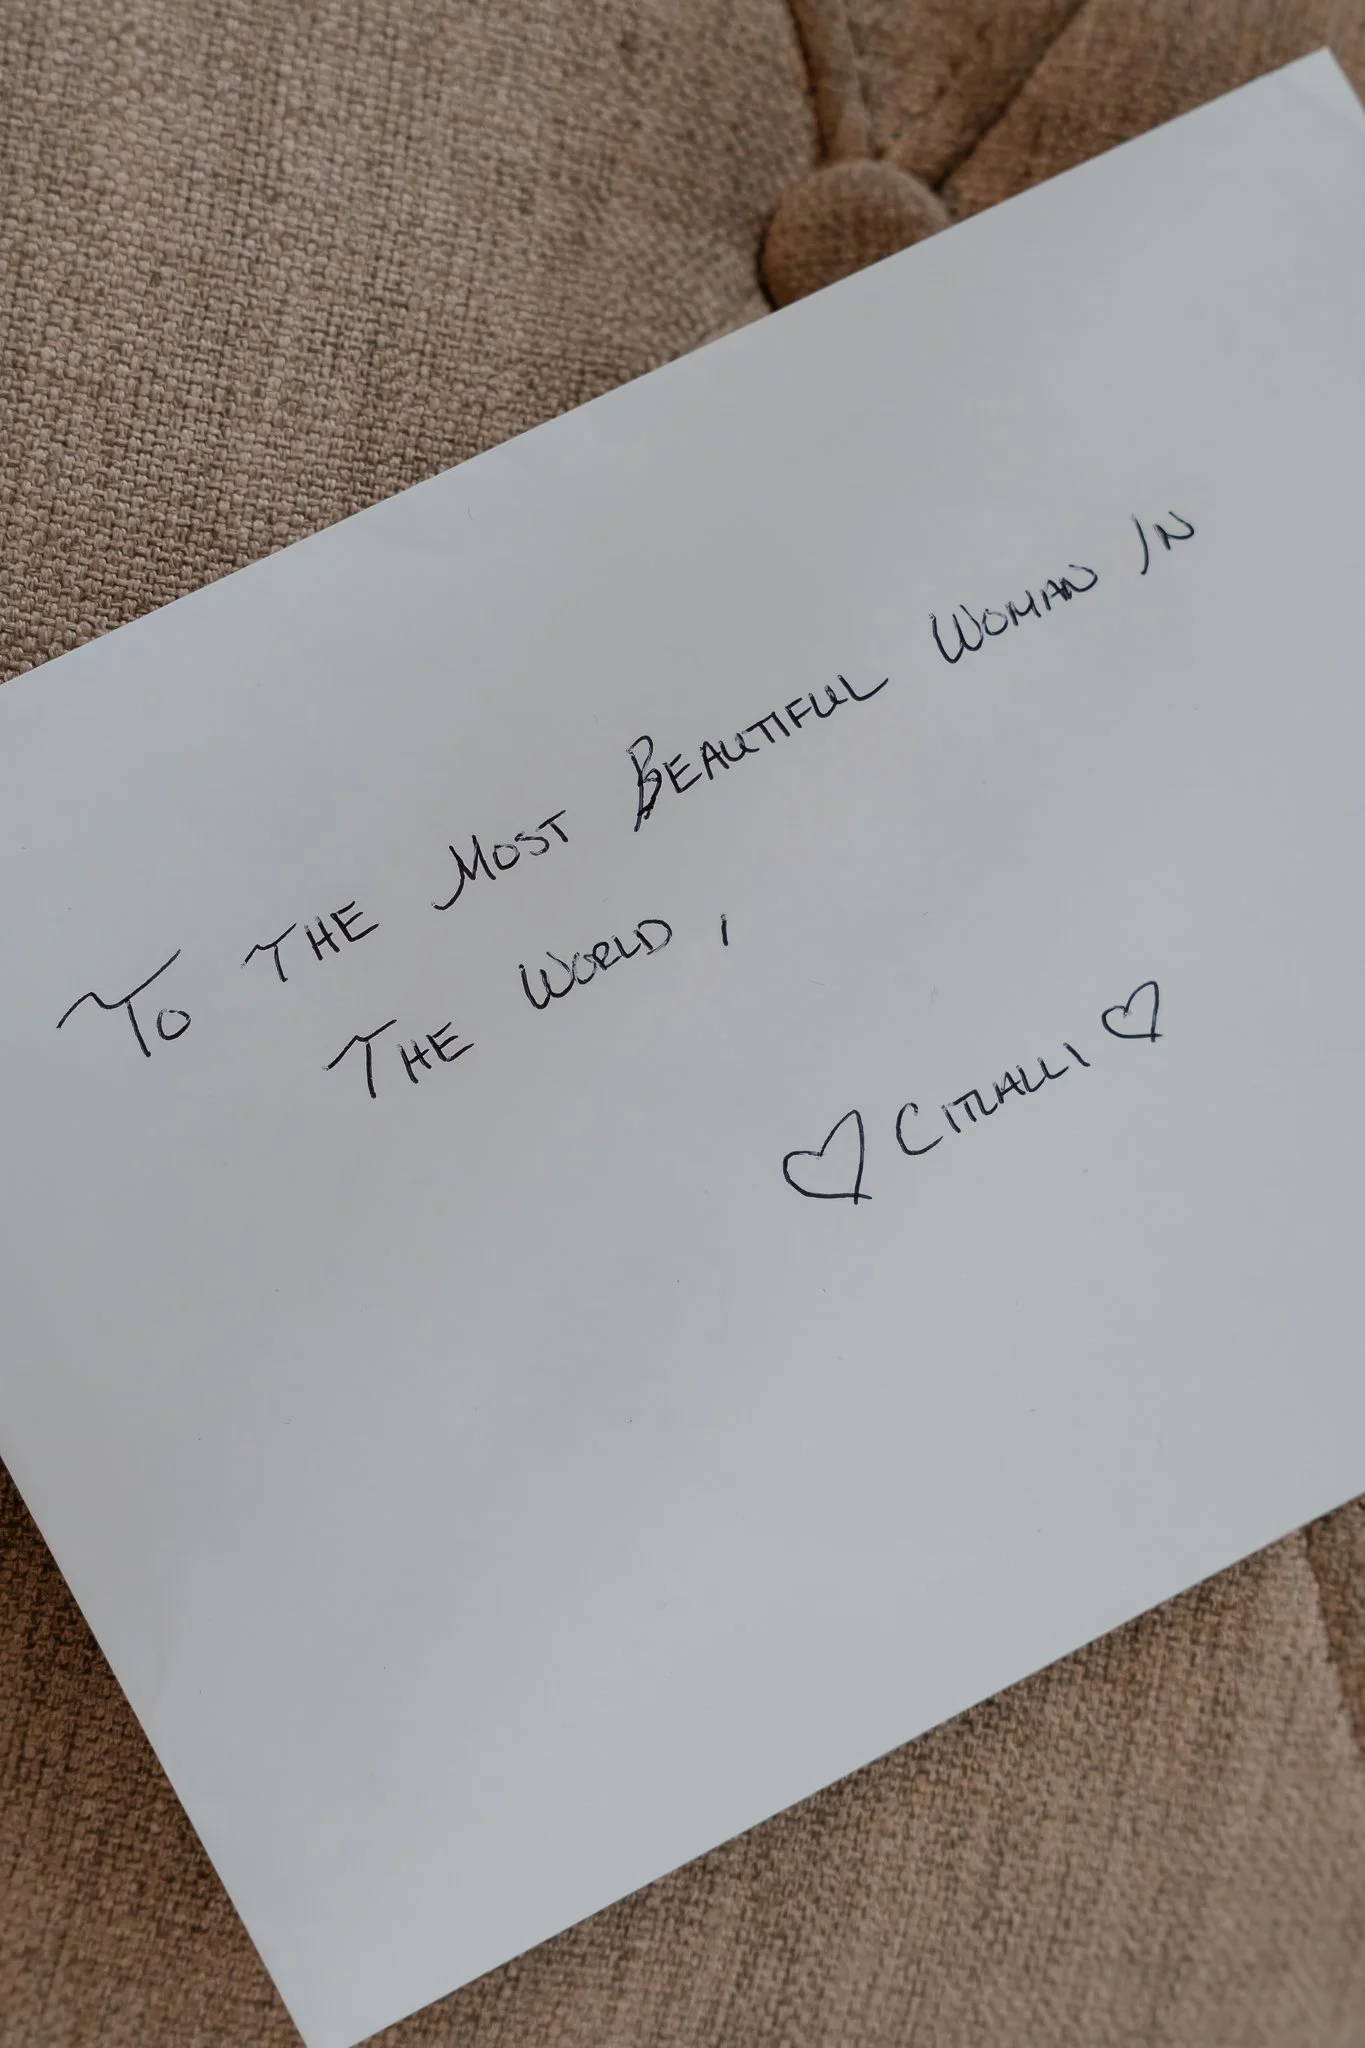 To THE MOST BEAUTIFUL WOMAN IN
THE WORLD,
♡ CITLALLI ♡